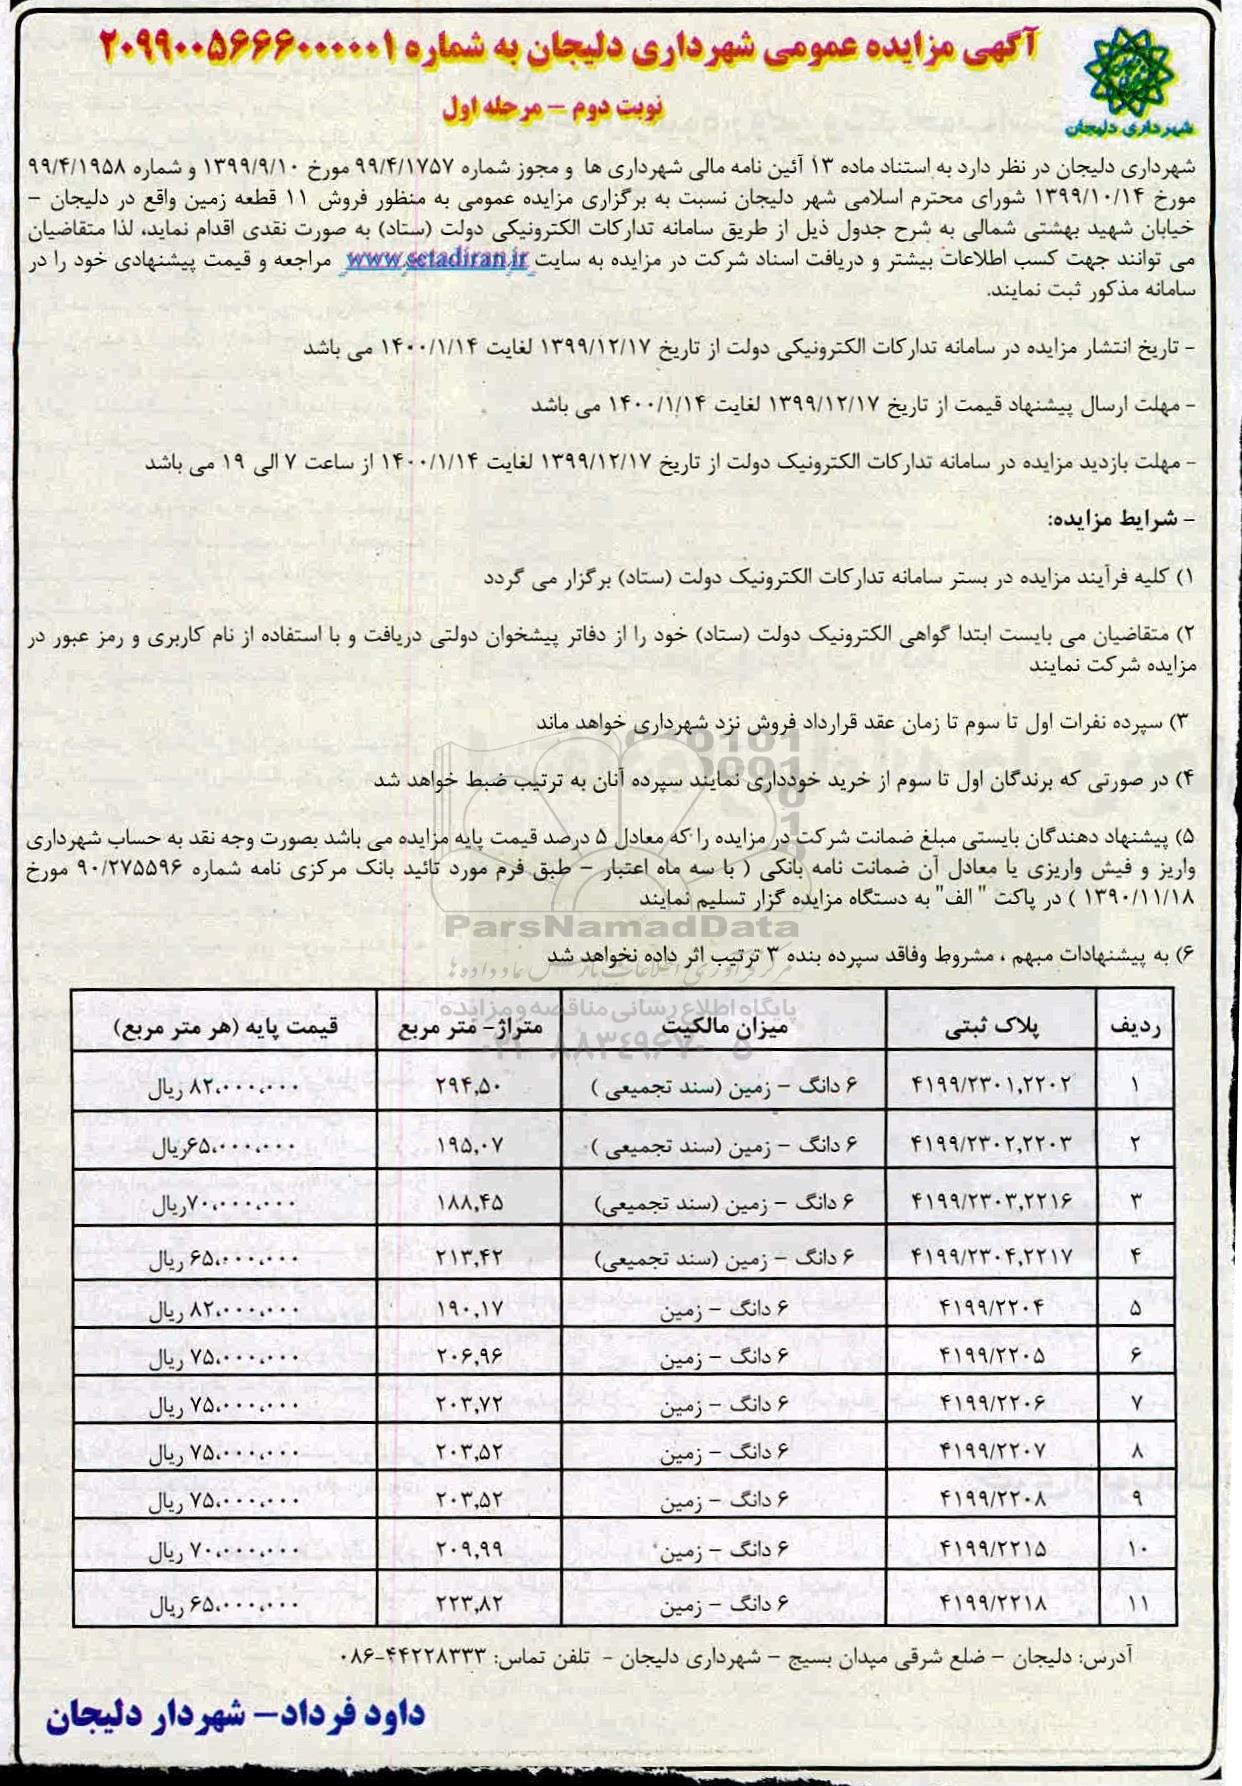 آگهی مزایده عمومی شهرداری دلیجان به شماره ۲۰۹۹۰۰۵۶۶۶۰۰۰۰۰۱
نوبت دوم – مرحله اول
شهرداری دلیجان
شهرداری دلیجان در نظر دارد به استناد ماده ۱۳ آئین نامه مالی شهرداری ها و مجوز شماره ۹۹/۴/۱۷۵۷ مورخ ۱۳۹۹/۹/۱۰ و شماره ۹۹/۴/۱۹۵۸
مورخ ۱۳۹۹/۱۰/۱۴ شورای محترم اسلامی شهر دلیجان نسبت به برگزاری مزایده عمومی به منظور فروش ۱۱ قطعه زمین واقع در دلیجان –
خیابان شهید بهشتی شمالی به شرح جدول ذیل از طریق سامانه تدارکات الکترونیکی دولت (ستاد) به صورت نقدی اقدام نماید، لذا متقاضیان
می توانند جهت کسب اطلاعات بیشتر و دریافت اسناد شرکت در مزایده به سایت www.setadiran.ir مراجعه و قیمت پیشنهادی خود را در
سامانه مذکور ثبت نمایند.
- تاریخ انتشار مزایده در سامانه تدارکات الکترونیکی دولت از تاریخ ۱۳۹۹/۱۲/۱۷ لغایت ۱۴۰۰/۱/۱۴ می باشد
- مهلت ارسال پیشنهاد قیمت از تاریخ ۱۳۹۹/۱۲/۱۷ لغایت ۱۴۰۰/۱/۱۴ می باشد
- مهلت بازدید مزایده در سامانه تدارکات الکترونیک دولت از تاریخ ۱۳۹۹/۱۲/۱۷ لغایت ۱۴۰۰/۱/۱۴ از ساعت ۷ الی ۱۹ می باشد
- شرایط مزایده:
۱) کلیه فرآیند مزایده در بستر سامانه تدارکات الکترونیک دولت (ستاد) برگزار می گردد
۲) متقاضیان می بایست ابتدا گواهی الکترونیک دولت (ستاد) خود را از دفاتر پیشخوان دولتی دریافت و با استفاده از نام کاربری و رمز عبور در
مزایده شرکت نمایند
۳) سپرده نفرات اول تا سوم تا زمان عقد قرارداد فروش نزد شهرداری خواهد ماند
۴) در صورتی که برندگان اول تا سوم از خرید خودداری نمایند سپرده آنان به ترتیب ضبط خواهد شد
۵) پیشنهاد دهندگان بایستی مبلغ ضمانت شرکت در مزایده را که معادل ۵ درصد قیمت پایه مزایده می باشد بصورت وجه نقد به حساب شهرداری
واریز و فیش واریزی یا معادل آن ضمانت نامه بانکی ( با سه ماه اعتبار – طبق فرم مورد تائید بانک مرکزی نامه شماره ۹۰/۲۷۵۵۹۶ مورخ
۱۳۹۰/۱۱/۱۸ ) در پاکت " الف" به دستگاه مزایده گزار تسلیم نمایند
ParsNamadData
۶) به پیشنهادات مبهم ، مشروط وفاقد سپرده بنده ۳ ترتیب اثر داده نخواهد شد
پایگاه اطلاع رسانی مناقصه و مزایده
ردیف پلاک ثبتی میزان مالکیت متراژ- متر مربع قیمت پایه (هر متر مربع)
۱ ۴۱۹۹/۲۳۰۱,۲۲۰۲ ۶ دانگ – زمین (سند تجمیعی ) ۲۹۴,۵۰ ۸۲,۰۰۰,۰۰۰ ریال
۲ ۴۱۹۹/۲۳۰۲,۲۲۰۳ ۶ دانگ – زمین (سند تجمیعی ) ۱۹۵,۰۷ ۶۵,۰۰۰,۰۰۰ریال
۳ ۴۱۹۹/۲۳۰۳,۲۲۱۶ ۶ دانگ – زمین (سند تجمیعی) ۱۸۸,۴۵ ۷۰,۰۰۰,۰۰۰ریال
۴ ۴۱۹۹/۲۳۰۴,۲۲۱۷ ۶ دانگ – زمین (سند تجمیعی) ۲۱۳,۴۲ ۶۵,۰۰۰,۰۰۰ ریال
۵ ۴۱۹۹/۲۲۰۴ ۶ دانگ – زمین ۱۹۰,۱۷ ۸۲,۰۰۰,۰۰۰ ریال
۶ ۴۱۹۹/۲۲۰۵ ۶ دانگ – زمین ۲۰۶,۹۶ ۷۵,۰۰۰,۰۰۰ ریال
۷ ۴۱۹۹/۲۲۰۶ ۶ دانگ – زمین ۲۰۳,۷۲ ۷۵,۰۰۰,۰۰۰ ریال
۸ ۴۱۹۹/۲۲۰۷ ۶ دانگ – زمین ۲۰۳,۵۲ ۷۵,۰۰۰,۰۰۰ ریال
۹ ۴۱۹۹/۲۲۰۸ ۶ دانگ – زمین ۲۰۳,۵۲ ۷۵,۰۰۰,۰۰۰ ریال
۱۰ ۴۱۹۹/۲۲۱۵ ۶ دانگ – زمین ۲۰۹,۹۹ ۷۰,۰۰۰,۰۰۰ ریال
۱۱ ۴۱۹۹/۲۲۱۸ ۶ دانگ – زمین ۲۲۳,۸۲ ۶۵,۰۰۰,۰۰۰ ریال
آدرس: دلیجان – ضلع شرقی میدان بسیج – شهرداری دلیجان - تلفن تماس: ۴۴۲۲۸۳۳۳-۰۸۶
داود فرداد– شهردار دلیجان